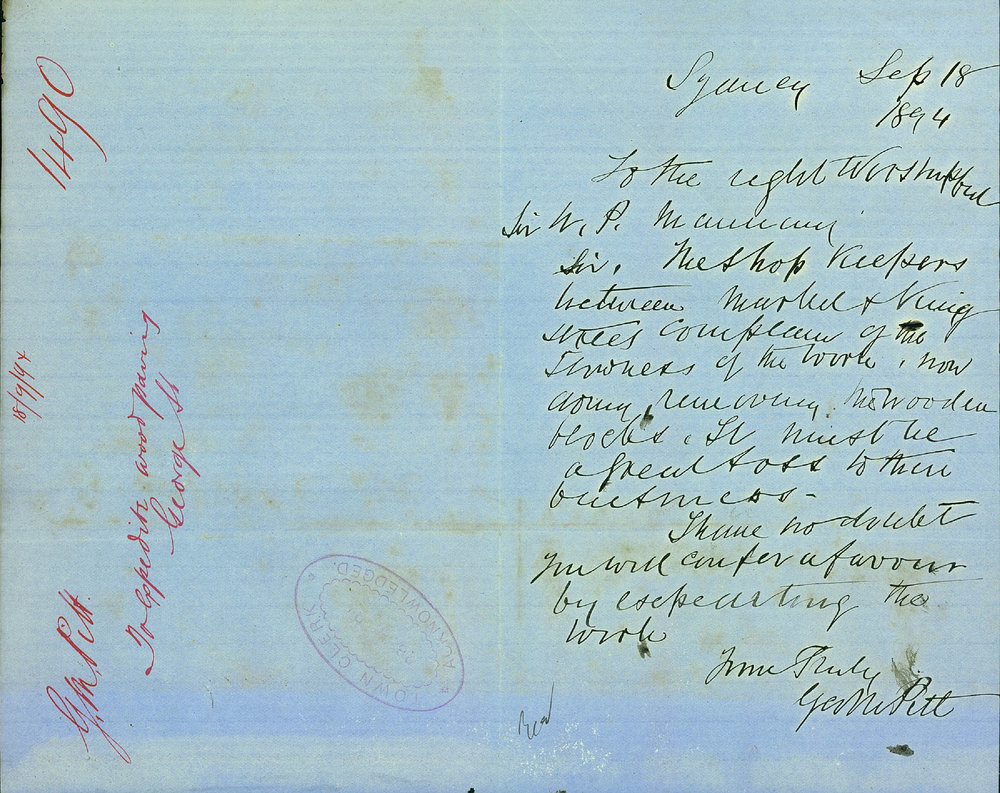 1490
18/9/94
G. M. Pitt.
To expedite wood paving
George St
Sydney Sep 18
1894
To the right Worshipful
Sir W. P. Manning
Sir. The Shop Keepers
between Market & King
streets Complain of the
Slowness of the work, now
doing, renewing the wooden
blocks. It must be
a great loss to there
business -
I have no doubt
you will confer a favour
by expediating the
work
Yours Truly
Geo M Pitt
TOWN CLERK
ACKNOWLEDGED.